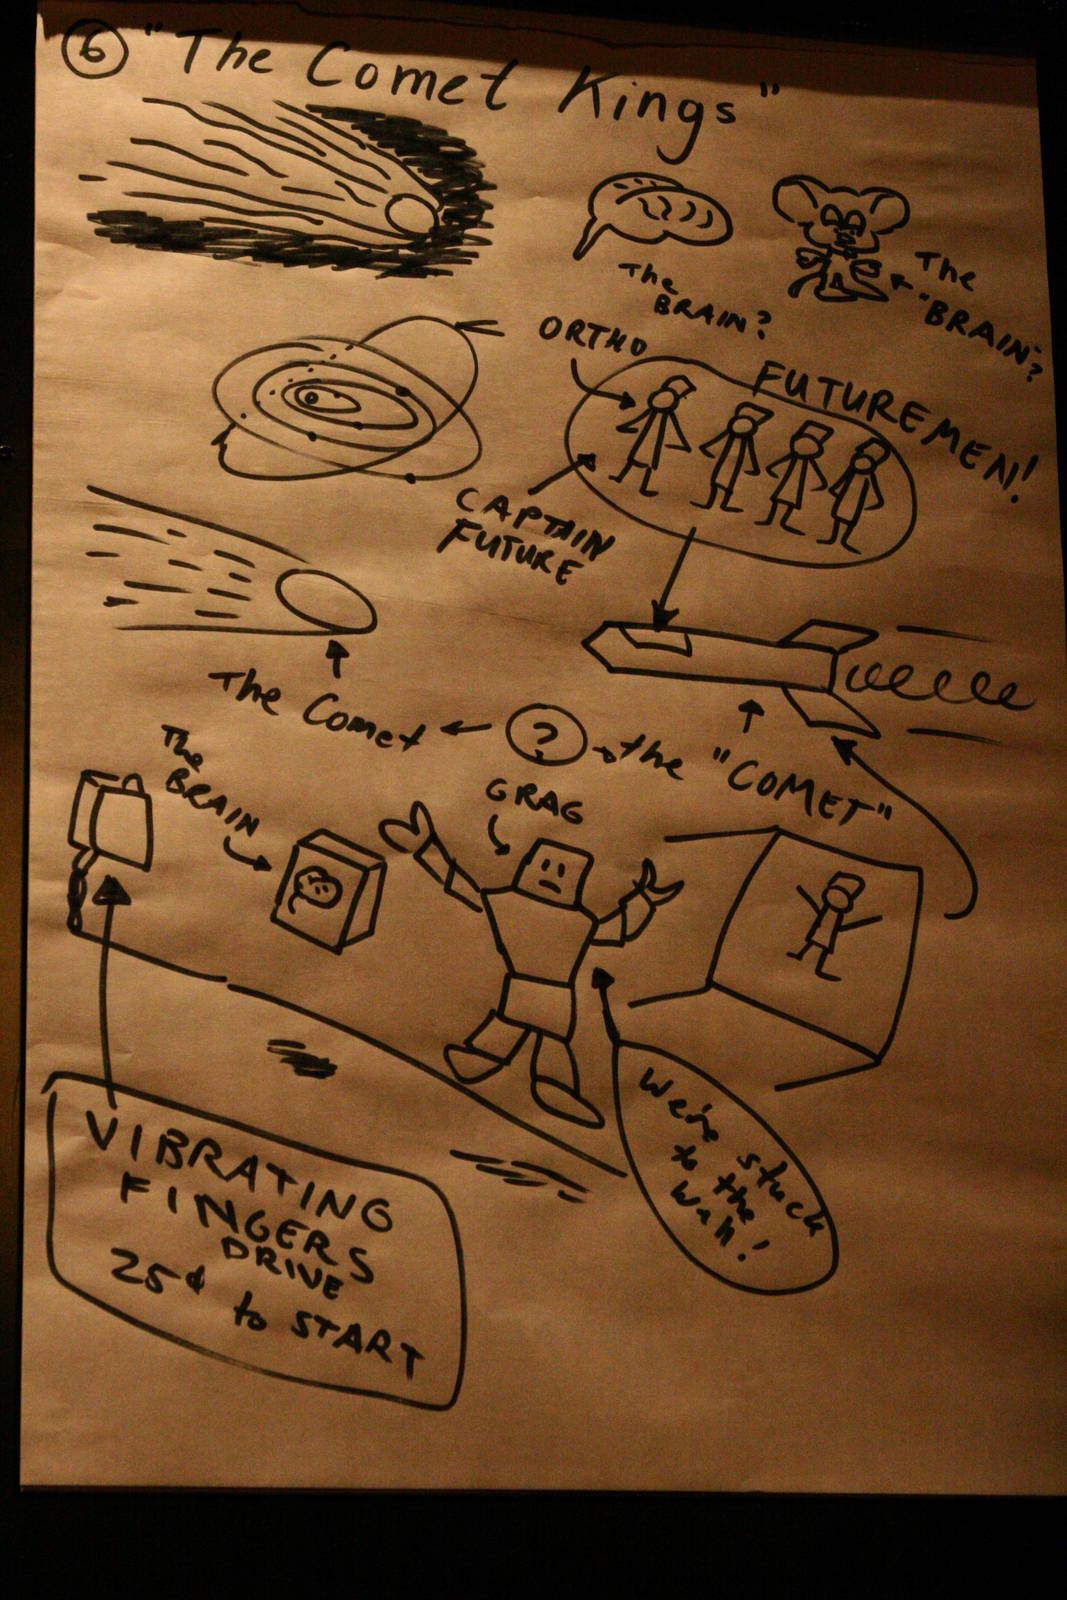 6 "The Comet Kings"
The
BRAIN?
The
"BRAIN"?
ORTHO
FUTUREMEN!
CAPTAIN
FUTURE
The Comet
?
the "COMET"
The
BRAIN
GRAG
We're stuck
to the
wall!
VIBRATING
FINGERS
DRIVE
25¢ to START